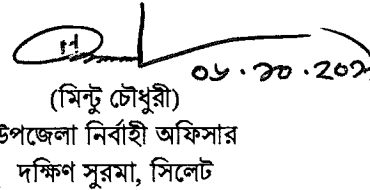 (মিন্টু চৌধুরী)
উপজেলা নির্বাহী অফিসার
দক্ষিণ সুরমা, সিলেট